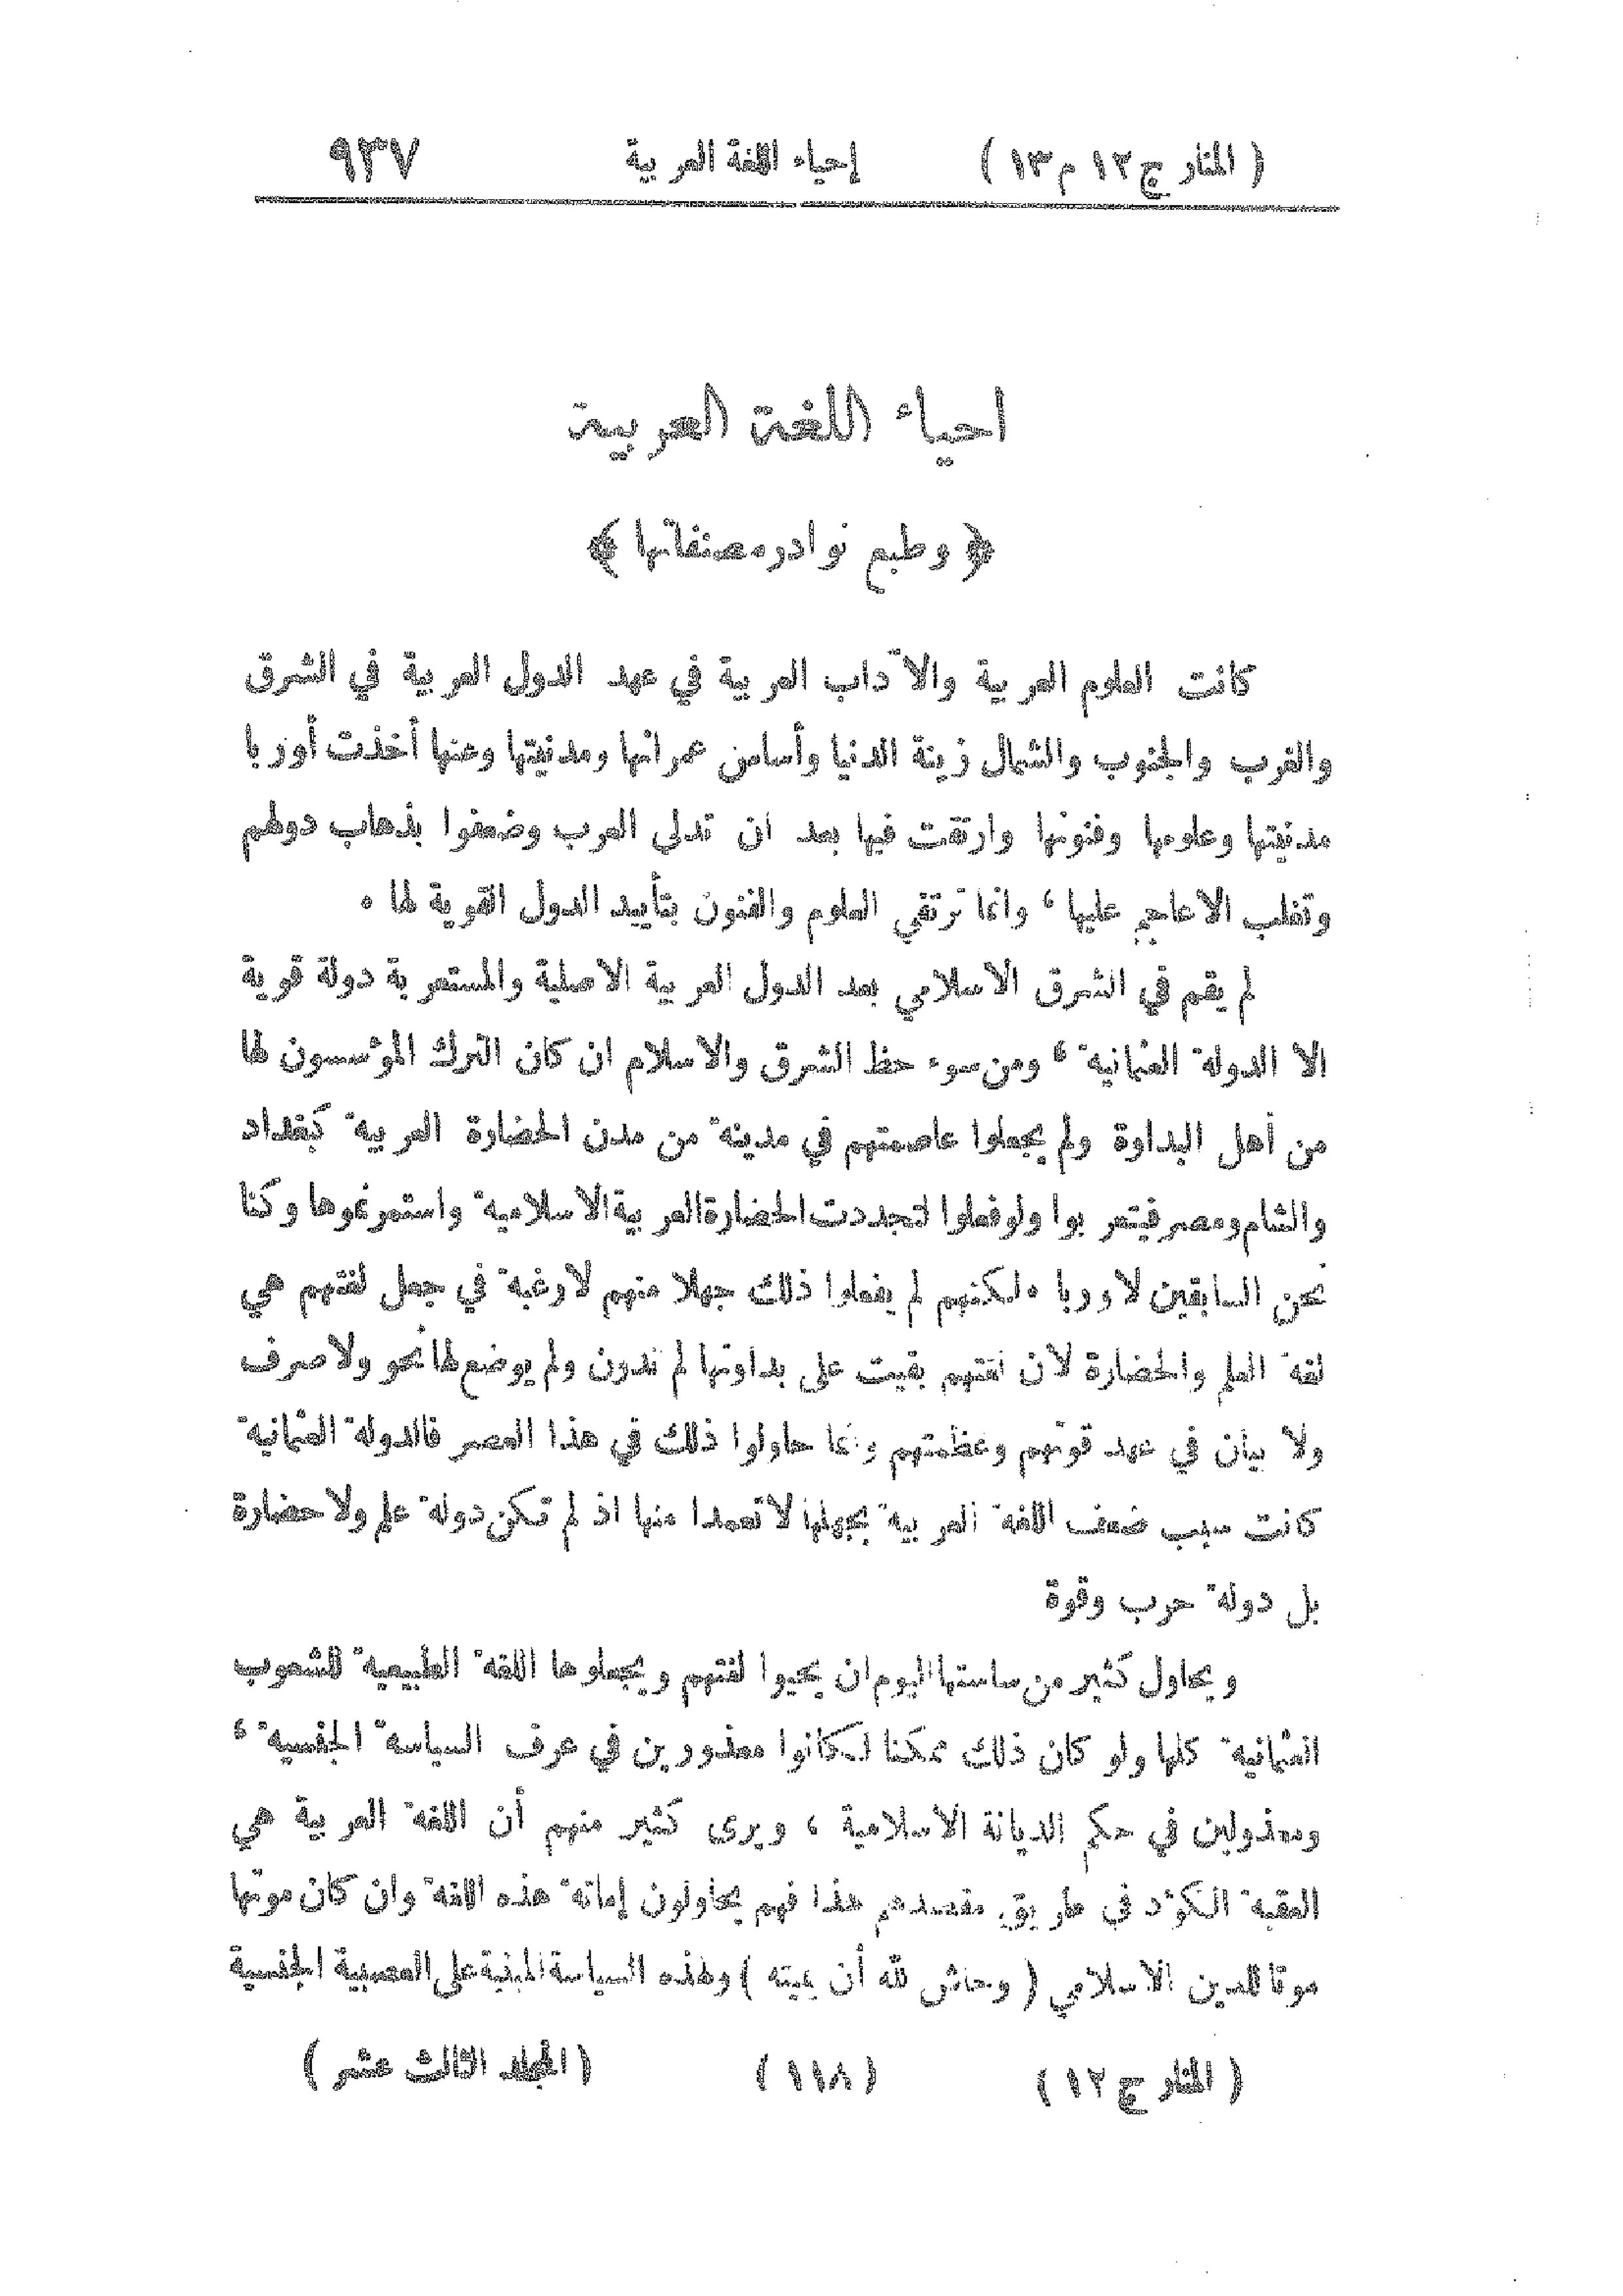 ( المنار ج ١٢ م ١٣ ) إحياء اللغة العربية ٩٣٧
احياء اللغة العربية
﴿ وطبع نوادر مصنفاتها ﴾
كانت العلوم العربية والآداب العربية في عهد الدول العربية في الشرق
والغرب والجنوب والشمال زينة الدنيا وأساس عمرانها ومدنيتها وعنها أخذت أوربا
مدنيتها وعلومها وفنونها وارتقت فيها بعد ان تدلى العرب وضعفوا بذهاب دولهم
وتغلب الاعاجم عليها ، وانما ترتقي العلوم والفنون بتأييد الدول القوية لها .
لم يقم في الشرق الاسلامي بعد الدول العربية الاصلية والمستعربة دولة قوية
الا الدولة العثمانية ، ومن سوء حظ الشرق والاسلام ان كان الترك المؤسسون لها
من أهل البداوة ولم يجعلوا عاصمتهم في مدينة من مدن الحضارة العربية كبغداد
والشام ومصر فيتعربوا ولو فعلوا لتجددت الحضارة العربية الاسلامية واستمر نموها وكنا
نحن السابقين لاوربا . لكنهم لم يفعلوا ذلك جهلا منهم لا رغبة في جعل لغتهم هي
لغة العلم والحضارة لان لغتهم بقيت على بداوتها لم تدون ولم يوضع لها نحو ولا صرف
ولا بيان في عهد قوتهم وعظمتهم وانما حاولوا ذلك في هذا العصر فالدولة العثمانية
كانت سبب ضعف اللغة العربية بجهلها لا تعمدا منها اذ لم تكن دولة علم ولا حضارة
بل دولة حرب وقوة
ويحاول كثير من ساستها اليوم ان يحيوا لغتهم ويجعلوها اللغة الطبيعية للشعوب
العثمانية كلها ولو كان ذلك ممكنا لكانوا معذورين في عرف السياسة الجنسية ،
ومعذولين في حكم الديانة الاسلامية ، ويرى كثير منهم أن اللغة العربية هي
العقبة الكؤد في طريق مقصدهم هذا فهم يحاولون إماتة هذه اللغة وان كان موتها
موتا للدين الاسلامي ( وحاش لله أن يميته ) ولهذه السياسة المبنية على العصبية الجنسية
( المنار ج ١٢ ) ( ١١٨ ) ( المجلد الثالث عشر )